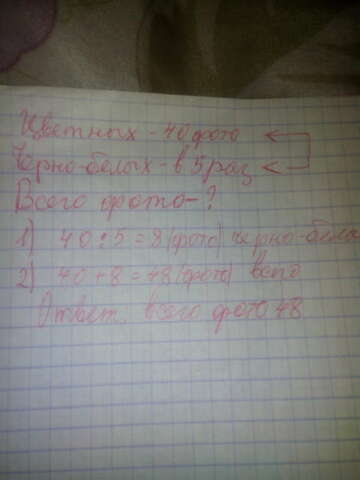 Цветных - 40 фото
Чёрно-белых - в 5 раз
Всего фото - ?
1) 40 : 5 = 8 (фото) черно-белых
2) 40 + 8 = 48 (фото) всего
Ответ: всего фото 48